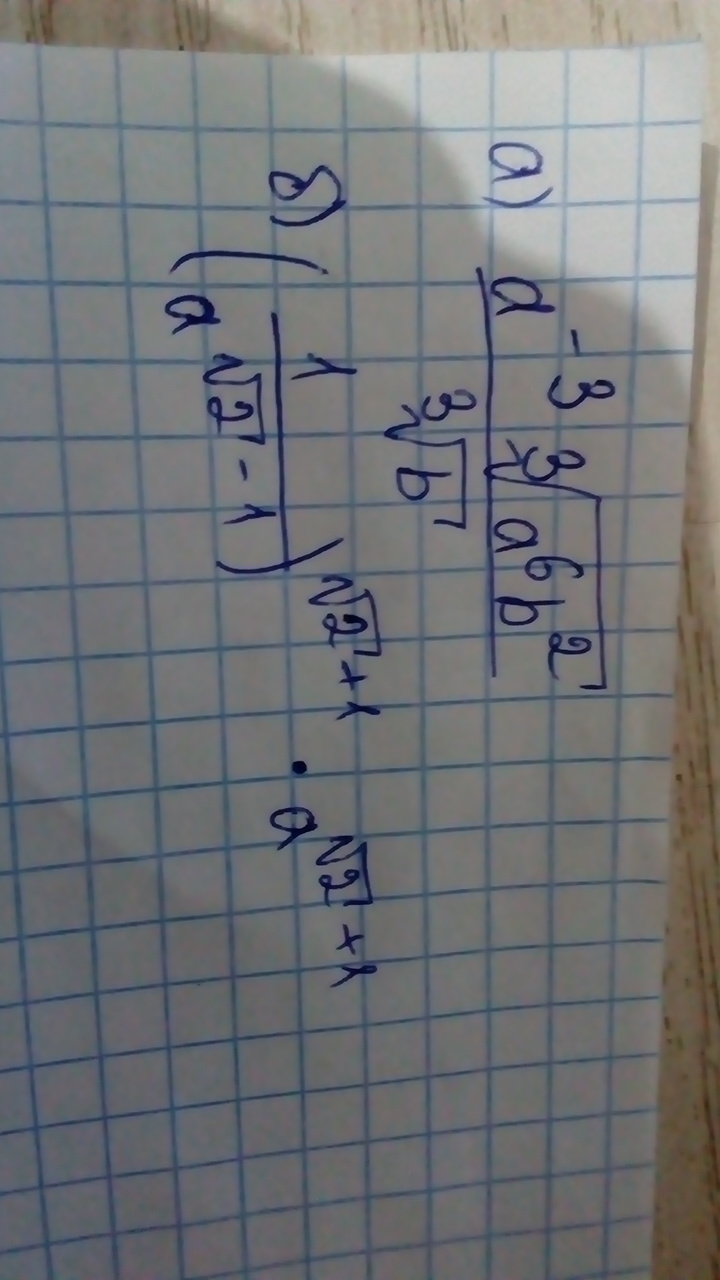 а) a⁻³ ∛(a⁶b²)
∛b
б) (1 / a^(√2 - 1))^(√2 + 1) · a^(√2 + 1)